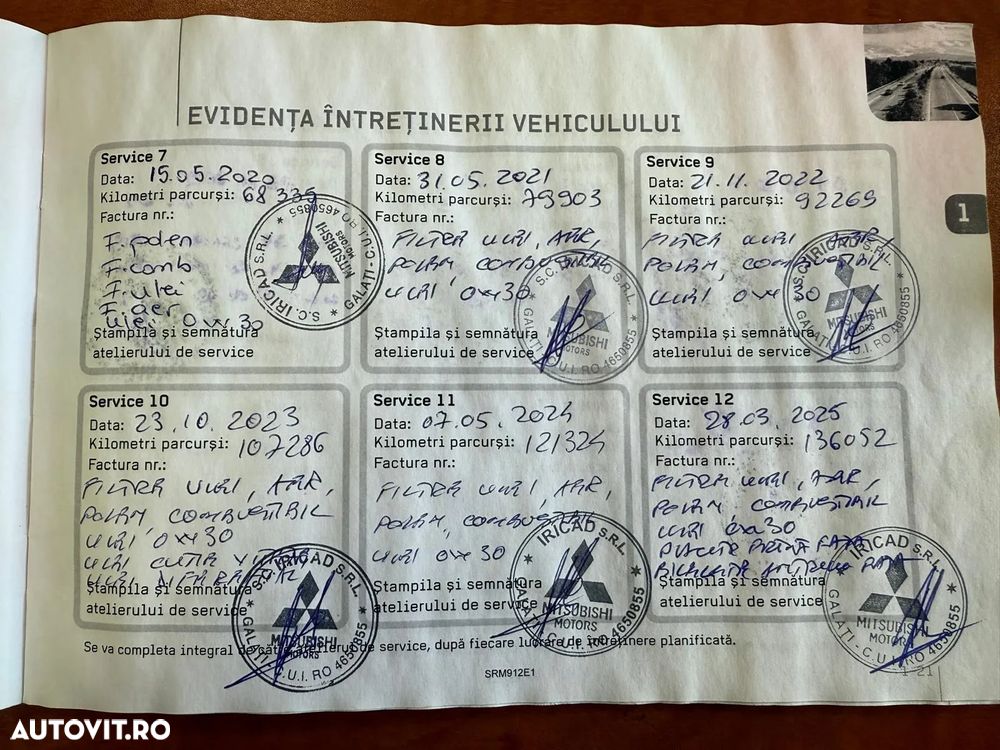 EVIDENȚA ÎNTREȚINERII VEHICULULUI
1
Service 7
Data: 15.05.2020
Kilometri parcurși: 68 335
Factura nr.:
F. polen
F. comb
F. ulei
F. aer
Ulei 0w30
Ștampila și semnătura
atelierului de service
S.C. IRICAD S.R.L. * GALATI - C.U.I. RO 4650855 *
MITSUBISHI
MOTORS
Service 8
Data: 31.05.2021
Kilometri parcurși: 79903
Factura nr.:
FILTRA ULEI, AER,
POLEN, COMBUSTIBIL
ULEI 0W30
Ștampila și semnătura
atelierului de service
S.C. IRICAD S.R.L. * GALATI - C.U.I. RO 4650855 *
MITSUBISHI
MOTORS
Service 9
Data: 21.11.2022
Kilometri parcurși: 92269
Factura nr.:
FILTRA ULEI, AER,
POLEN, COMBUSTIBIL
ULEI 0W30
Ștampila și semnătura
atelierului de service
IRICAD S.R.L. * GALATI - C.U.I. RO 4650855 *
MITSUBISHI
MOTORS
Service 10
Data: 23.10.2023
Kilometri parcurși: 107286
Factura nr.:
FILTRA ULEI, AER,
POLEN COMBUSTIBIL
ULEI 0W30
ULEI
ULEI
Ștampila și semnătura
atelierului de service
IRICAD S.R.L. * GALATI - C.U.I. RO 4650855 *
MITSUBISHI
MOTORS
Service 11
Data: 07.05.2024
Kilometri parcurși: 121324
Factura nr.:
FILTRA ULEI, AER,
POLEN, COMBUSTIBIL
ULEI 0W30
Ștampila și semnătura
atelierului de service
IRICAD S.R.L. * GALATI - C.U.I. RO 4650855 *
MITSUBISHI
MOTORS
Service 12
Data: 28.03.2025
Kilometri parcurși: 136052
Factura nr.:
FILTRA ULEI, AER,
POLEN, COMBUSTIBIL
ULEI 0W30
FATA
FATA
Ștampila și semnătura
atelierului de service
IRICAD S.R.L. * GALATI - C.U.I. RO 4650855 *
MITSUBISHI
MOTORS
Se va completa integral de către atelierul de service, după fiecare lucrare de întreținere planificată.
SRM912E1
1-21
AUTOVIT.RO